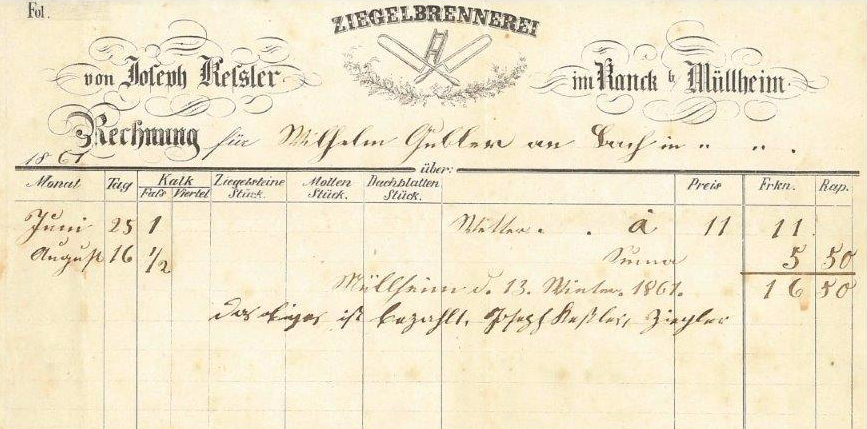 Fol.
ZIEGELBRENNEREI
von Joseph Kessler
im Ranck b. Müllheim.
Rechnung für Wilhelm Gubler an Bach in " " .
1861 über:
Monat Tag Kalk Ziegelsteine Motten Dachplatten Preis Frkn. Rap.
Fass Viertel Stück. Stück. Stück.
Juni 25 1 à 11 11
August 16 1/2 Suma 5 50
Müllheim d. 13. Winter. 1861. 16 50
das obiges ist bezahlt, Joseph Keßler, Ziegler